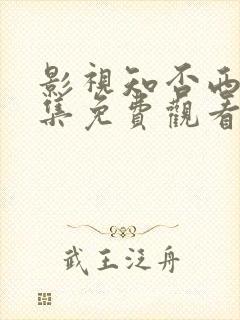 影視知否兩
集免費觀看
武王泛舟